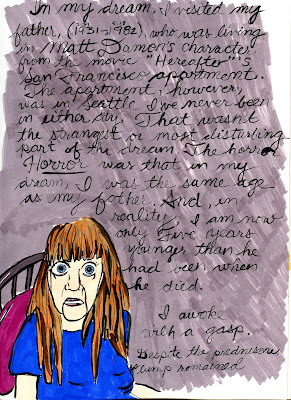 In my dream, I visited my
father, (1931-1982), who was living
in Matt Damon's character
from the movie "Hereafter"'s
San Francisco apartment.
The apartment, however,
was in Seattle. I've never been
in either city. That wasn't
the strangest or most disturbing
part of the dream. The horror
Horror was that in my
dream, I was the same age
as my father. And, in
reality, I am now
only five years
younger than he
had been when
he died.
I awoke
with a gasp...
Despite the prednisone
lump remained